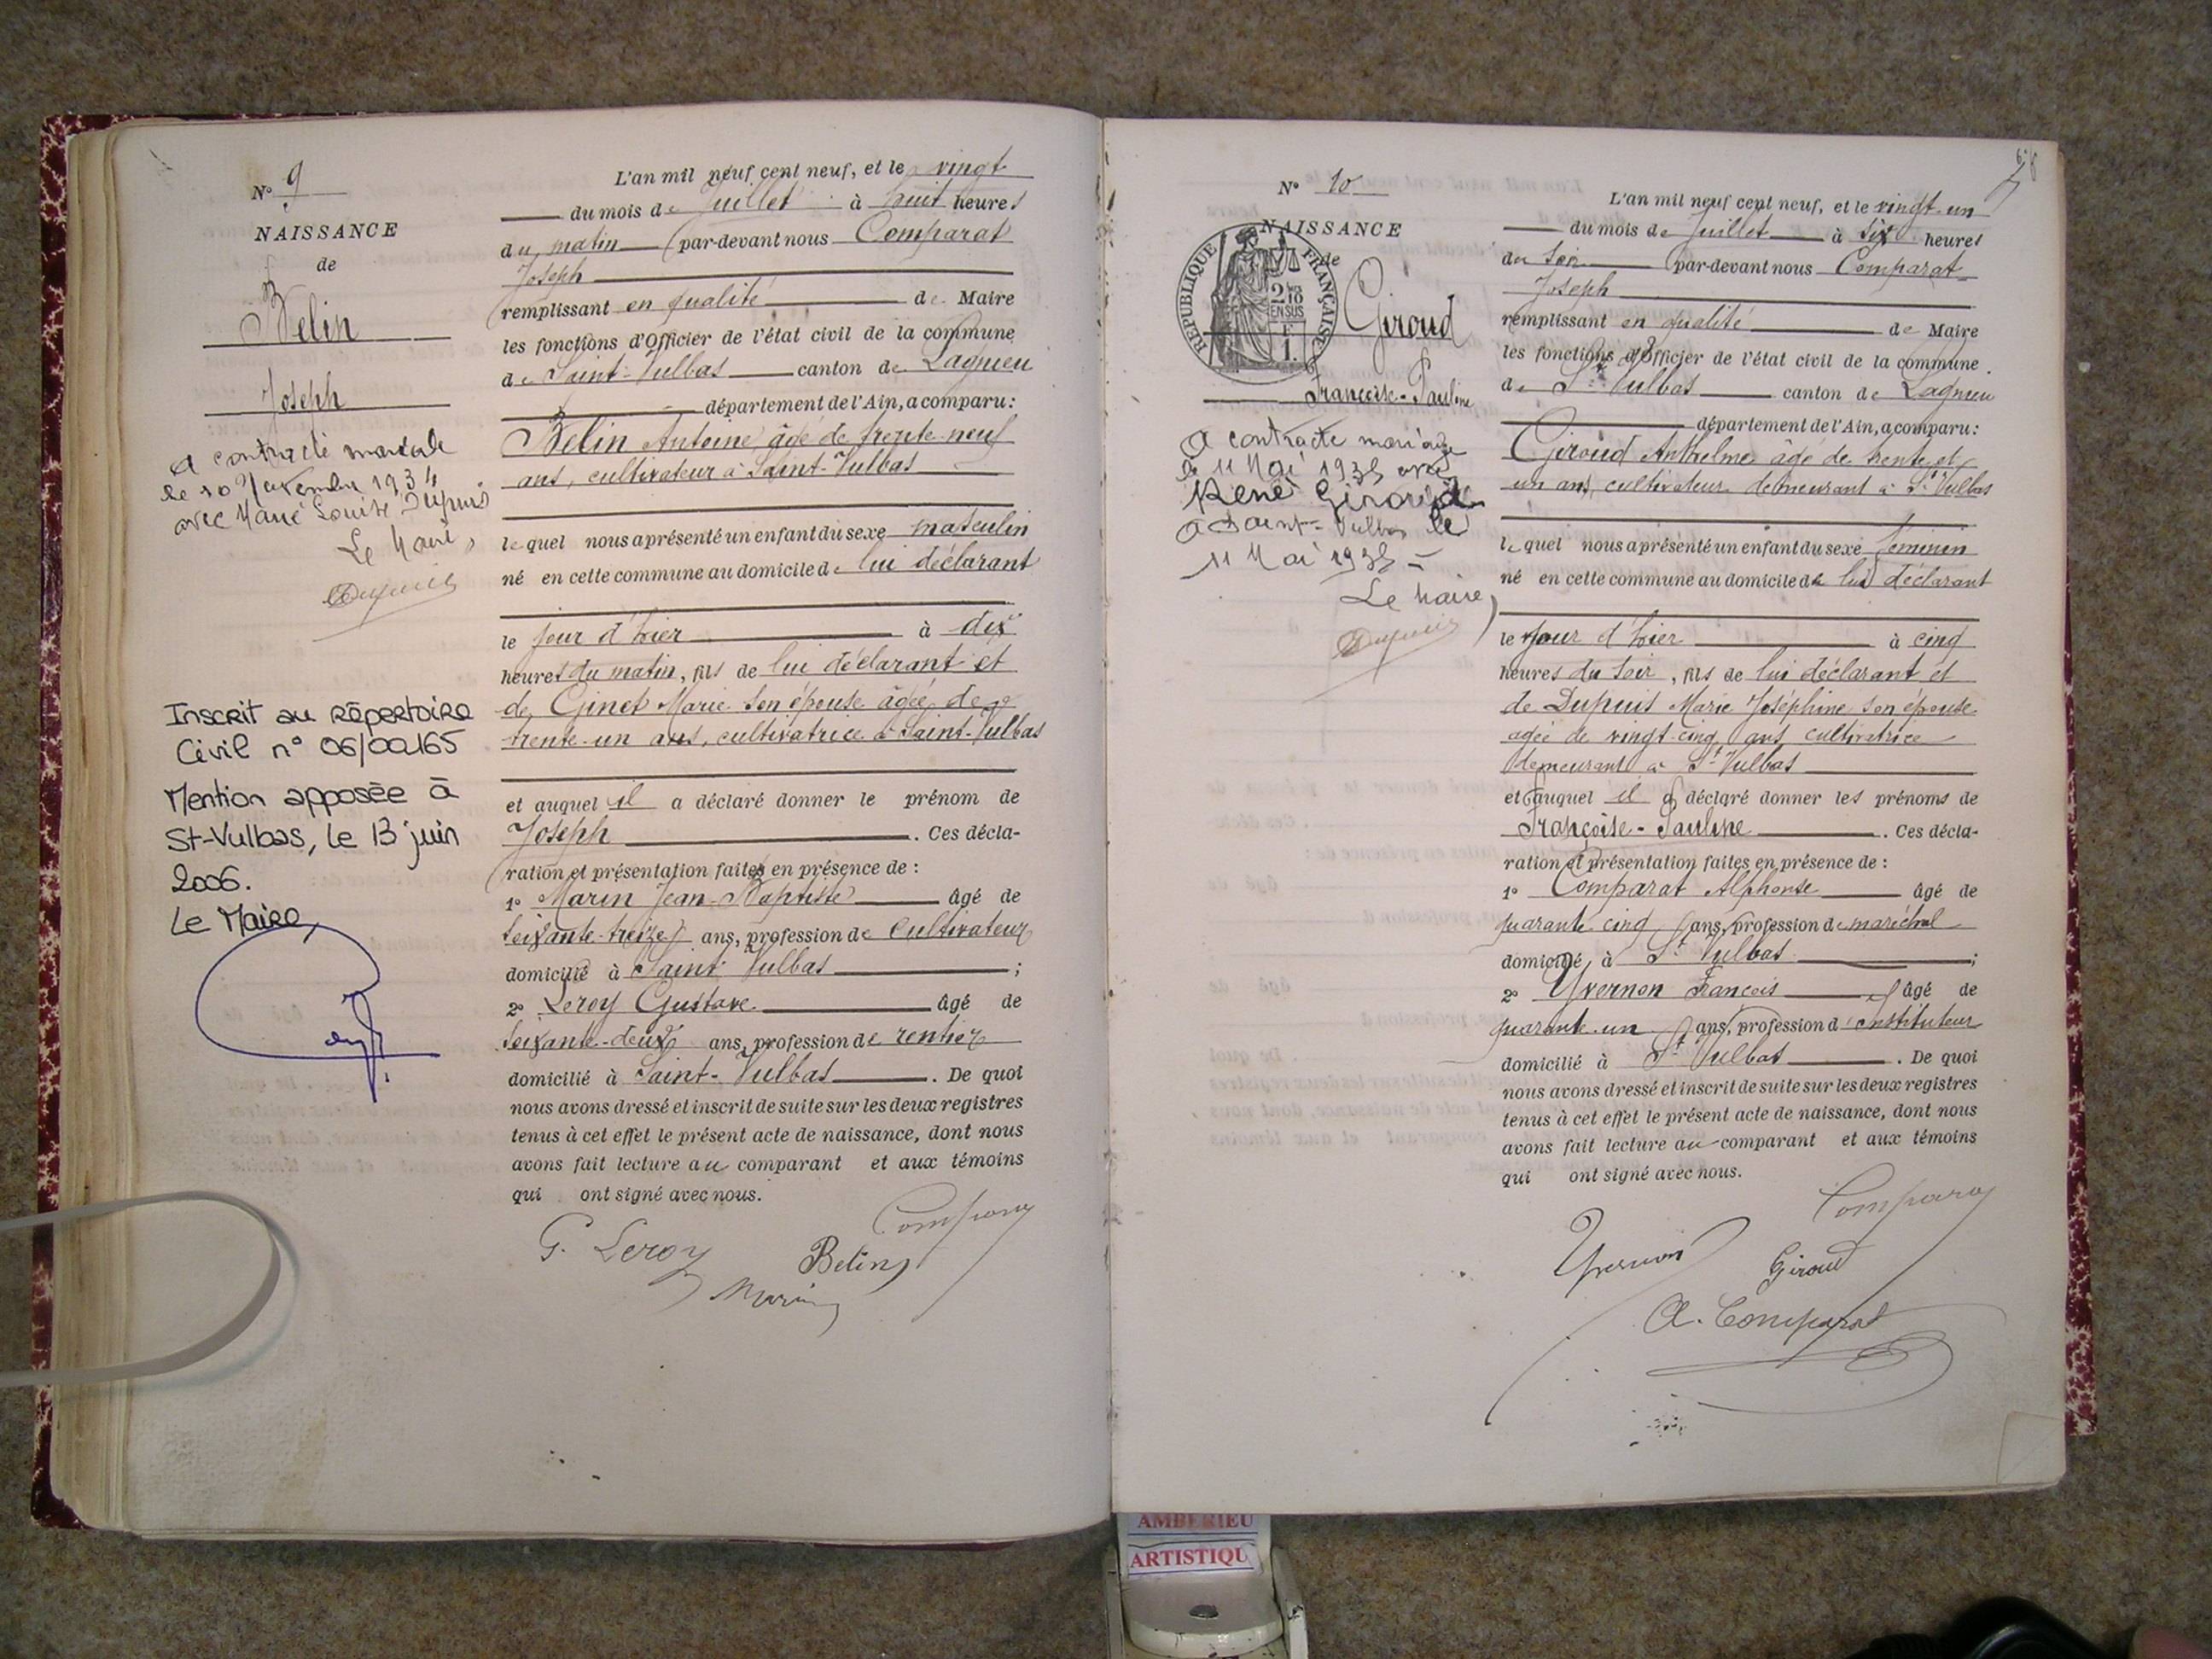 N° 9
NAISSANCE
de
Belin
Joseph
a contracté mariage
le 10 Novembre 1934
avec Marie Louise Dupuis
Le Maire,
Dupuis
Inscrit au Répertoire
Civil n° 06/00165
Mention apposée à
St-Vulbas, le 13 juin
2006.
Le Maire,
L'an mil neuf cent neuf, et le vingt
du mois de Juillet à huit heures
du matin par-devant nous Comparat
Joseph
remplissant en qualité de Maire
les fonctions d'Officier de l'état civil de la commune
de Saint-Vulbas canton de Lagnieu
département de l'Ain, a comparu :
Belin Antoine âgé de trente-neuf
ans, cultivateur à Saint-Vulbas
lequel nous a présenté un enfant du sexe masculin
né en cette commune au domicile de lui déclarant
le jour d'hier à dix
heures du matin, fils de lui déclarant et
de Ginet Marie son épouse âgée de
trente-un ans, cultivatrice à Saint-Vulbas
et auquel il a déclaré donner le prénom de
Joseph . Ces décla-
ration et présentation faites en présence de :
1° Marin Jean-Baptiste âgé de
soixante-treize ans, profession de cultivateur
domicilié à Saint Vulbas ;
2° Leroy Gustave âgé de
soixante-deux ans, profession de rentier
domicilié à Saint-Vulbas . De quoi
nous avons dressé et inscrit de suite sur les deux registres
tenus à cet effet le présent acte de naissance, dont nous
avons fait lecture au comparant et aux témoins
qui ont signé avec nous.
Comparat
G. Leroy Belin
Marin
N° 10
NAISSANCE
de
RÉPUBLIQUE FRANÇAISE
2 10
EN SUS
F
1.
Giroud
Françoise-Pauline
a contracté mariage
le 11 Mai 1935 avec
René Girard
à Saint-Vulbas le
11 Mai 1935 -
Le Maire,
Dupuis
L'an mil neuf cent neuf, et le vingt-un
du mois de Juillet à six heures
du soir par-devant nous Comparat
Joseph
remplissant en qualité de Maire
les fonctions d'Officier de l'état civil de la commune
de St Vulbas canton de Lagnieu
département de l'Ain, a comparu :
Giroud Anthelme âgé de trente et
un ans, cultivateur demeurant à St Vulbas
lequel nous a présenté un enfant du sexe féminin
né en cette commune au domicile de lui déclarant
le jour d'hier à cinq
heures du soir, fils de lui déclarant et
de Dupuis Marie Joséphine son épouse
agée de vingt-cinq ans cultivatrice
demeurant à St Vulbas
et auquel il a déclaré donner les prénoms de
Françoise-Pauline . Ces décla-
ration et présentation faites en présence de :
1° Comparat Alphonse âgé de
quarante cinq ans, profession de maréchal
domicilié à St Vulbas ;
2° Yvernon François âgé de
quarante-un ans, profession d'instituteur
domicilié à St Vulbas . De quoi
nous avons dressé et inscrit de suite sur les deux registres
tenus à cet effet le présent acte de naissance, dont nous
avons fait lecture au comparant et aux témoins
qui ont signé avec nous.
Comparat
Yvernon Giroud
A. Comparat
AMBERIEU
ARTISTIQU